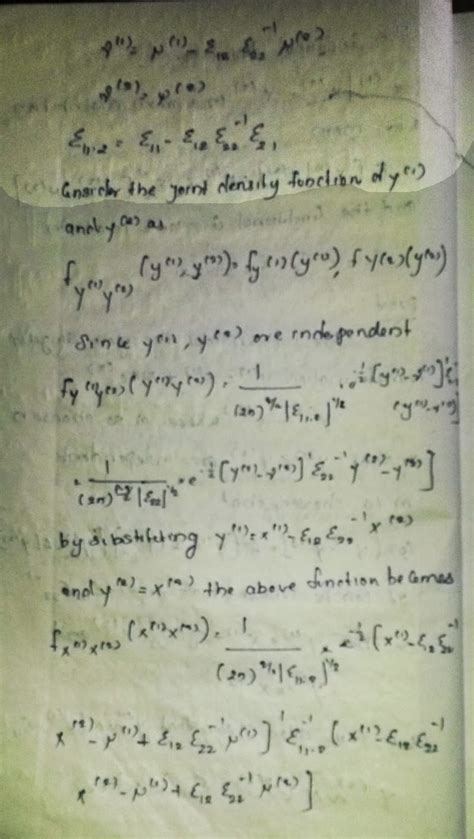 ν^(1) = μ^(1) - Σ_12 Σ_22^-1 μ^(2)
ν^(2) = μ^(2)
Σ_11.2 = Σ_11 - Σ_12 Σ_22^-1 Σ_21
Consider the joint density function of y^(1)
and y^(2) as
f_y^(1)y^(2) (y^(1), y^(2)) = f_y^(1)(y^(1)), f_y^(2)(y^(2))
Since y^(1), y^(2) are independent
f_y^(1)y^(2) (y^(1)y^(2)) = 1/((2π)^q/2 |Σ_11.2|^1/2) . e^-1/2 [y^(1)-ν^(1)]' Σ
(y^(1)-ν^(1)]
= 1/((2π) |Σ_22|^1/2) . e^-1/2 [y^(2)-ν^(2)]' Σ_22^-1 y^(2)-ν^(2)]
by substituting y^(1) = x^(1) - Σ_12 Σ_22^-1 x^(2)
and y^(2) = x^(2) the above function becomes
f_x^(1)x^(2) (x^(1)x^(2)) = 1/((2π)^q/2 |Σ_11.2|^1/2) × e^-1/2 (x^(1) - Σ_12 Σ_22^-1
x^(2) - μ^(1) + Σ_12 Σ_22^-1 μ^(1)]' Σ_11.2^-1 (x^(1) - Σ_12 Σ_22^-1
x^(2) - μ^(1) + Σ_12 Σ_22^-1 μ^(2)]